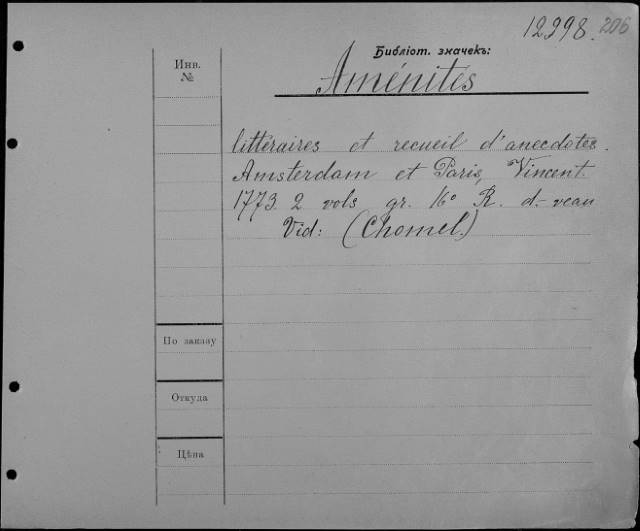 12298. 206
Библіот. значекъ:
Инв.
№
Aménites
littéraires et recueil d'anecdotes.
Amsterdam et Paris, Vincent.
1773. 2 vols gr. 16° R. d.-veau
Vid: (Chomel.)
По заказу
Откуда
Цѣна